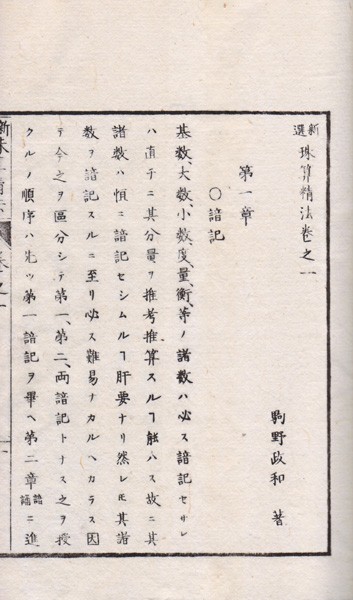 新選 珠算精法卷之一
駒野政和 著
第一章
〇諳記
基数、大数、小数、度、量、衡、等ノ諸数ハ必ス諳記セサレ
ハ直チニ其分量ヲ推考推算スルヿ能ハス故ニ其
諸数ハ慎ニ諳記セシムルヿ肝要ナリ然レ𪜈其諸
数ヲ諳記スルニ至リ必ス難易ナカルヘカラス因
テ今之ヲ區分シテ第一、第二、両諳記トナス之ヲ授
クルノ順序ハ先ツ第一諳記ヲ畢ヘ第二章諳誦ニ進